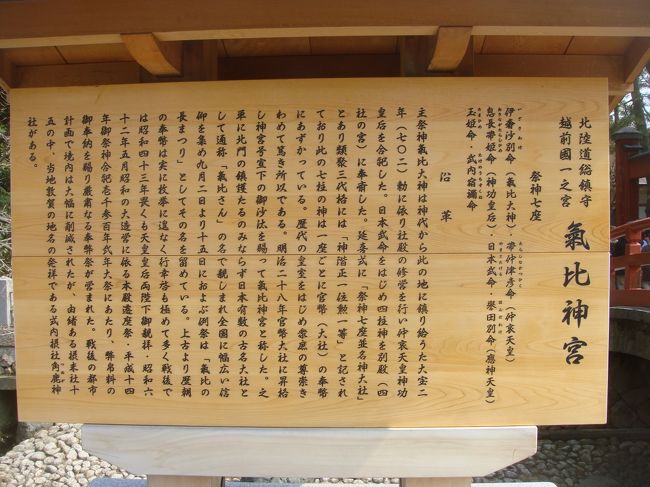 北陸道総鎮守
越前國一之宮
氣比神宮
祭神七座
伊奢沙別命（氣比大神）・帶仲津彦命（仲哀天皇）
息長帶姫命（神功皇后）・日本武命・譽田別命（應神天皇）
玉姫命・武内宿禰命
沿革
主祭神氣比大神は神代から此の地に鎮り給うた大宝二
年（七〇二）勅に依り社殿の修営を行い仲哀天皇神功
皇后を合祀した。日本武命をはじめ四柱神を別殿（四
社の宮）に奉斎した。延喜式に「祭神七座並名神大社」
とあり類聚三代格には「神階正一位勲一等」と記され
ており此の七柱の神は一座ごとに官幣（大社）の奉幣
にあずかっている。歴代の皇室をはじめ衆庶の尊崇き
わめて篤き所以である。明治二十八年官幣大社に昇格
し神宮号宣下の御沙汰を賜って氣比神宮と称した。之
単に北門の鎮護たるのみならず日本有数の古名大社と
して通称「氣比さん」の名で親しまれ全国に幅広い信
仰を集め九月二日より十五日におよぶ例祭は「氣比の
長まつり」としてその名を留めている。上古より歴朝
の奉幣は実に枚挙に遑なく行幸啓も極めて多く戦後で
は昭和四十三年畏くも天皇皇后両陛下御親拝・昭和六
十二年五月昭和の大造営に依る本殿遷座祭 平成十四
年御祭神合祀壱千参百年式年大祭にあたり、幣帛料の
御奉納を賜り厳粛なる奉幣祭が営まれた。戦後の都市
計画で境内は大幅に削減されたが、由緒ある摂末社十
五の中、当地敦賀の地名の発祥である式内摂社角鹿神
社がある。